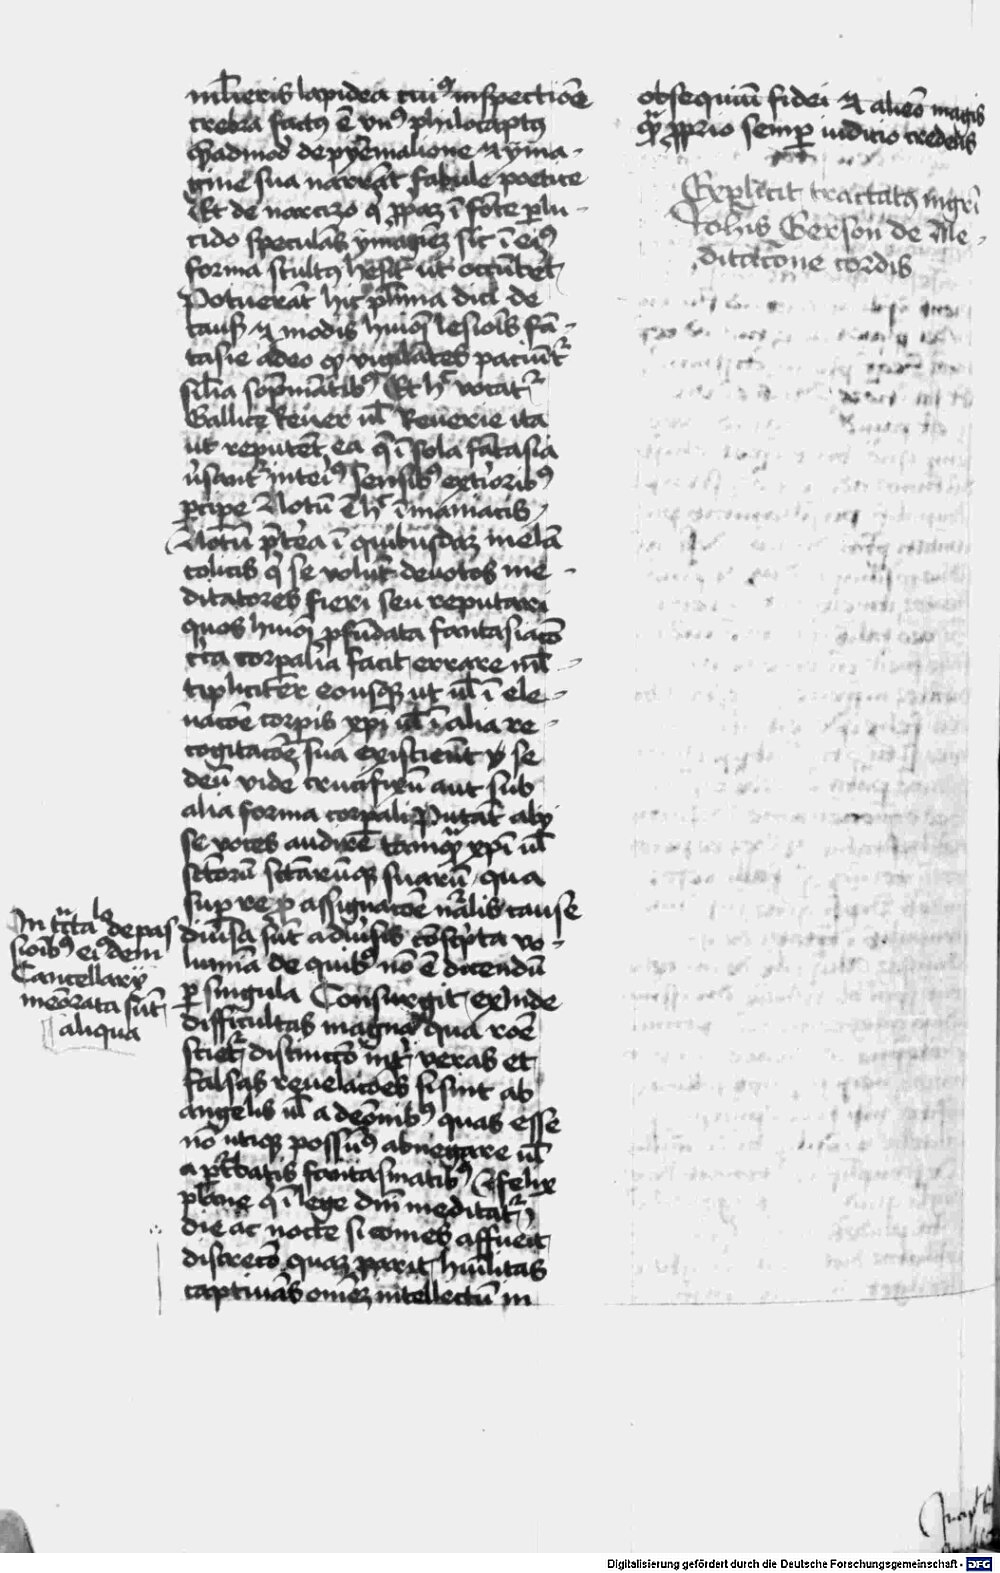 mulieris lapidea cuiꝰ inspectiōe
crebra factꝰ ē vnꝰ philocaptꝰ
qᷓadmodū de pygmalione et yma-
gine sua narrāt fabule poetice
Et de narcizo qͥ ꝓpaꝫ ī fōte ꝑlu-
cido speculās ymagīeꝫ sic ī eiꝰ
forma stultꝰ hesit ut occūbet
Potuerāt hic plīma dici de
causis et modis huiꝰ lesiōis fā-
tasie adeo qꝫ vigilātes paciūtᷣ
sil̄ia sōpniātibꝰ Et hͦ vocatᷣ
Gallice Reuer ul̄ Reuerie ita
ut reputēt ea qͥ ī sola fātasia
ũsantᷣ inteiꝰ sensibꝰ exterioribꝰ
ꝑcipe Notū ē hͦ ī maniacis
Notū p̄terea ī quibusdaꝫ melā
colicis qͥ se volūt deuotos me-
ditatores fieri seu reputari
quos huiꝰ ꝓfūdata fantasiacō
cͥca corꝑalia facit errare mĺ-
tiplicitēr eousqꝫ ut ul̄ ī ele-
uacōe corꝑis xp̄i ul̄ ī alia re-
cogitacōe sua existiēnt ꝙ se
deū vidē crucifixū aut sub
alia forma corꝑali Putāt alij
se voces audire tamqᷓ xp̄i ul̄
sctōrū sctārūqꝫ suarū qua
suꝑ re ꝓ assignacōe nr̄alis cause
diũsa sūt a diũsis cōscͥpta vo-
lumīa de quibꝰ nō ē dicendū
ꝑ singula Consurgit exinde
difficultas magna qua rōe
scietᷣ distinctō intͬ veras et
falsas reuelacōes si sint ab
angelis ul̄ a demōibꝰ quas esse
nō utiqꝫ possumꝰ abnegare ul̄
a ꝑtᷣbatis fantasmatibꝰ Et felix
plane qͥ ī lege dn̄i meditatᷣ
die ac nocte si comes affuerit
discrecō quaꝫ parit huīlitas
captiuās omēꝫ intellectū in
In tcͣtatulo de pas
sioībꝰ eiꝰdem
Cancellarij
meōrata sūt
aliqua
obsequiū fidei et alieō magis
qᷓ ꝓprio semꝑ iudicio credēs
Explicit tractatꝰ mgr̄i
Joh̄is Gerson de Me-
ditatione cordis
Digitalisierung gefördert durch die Deutsche Forschungsgemeinschaft - DFG